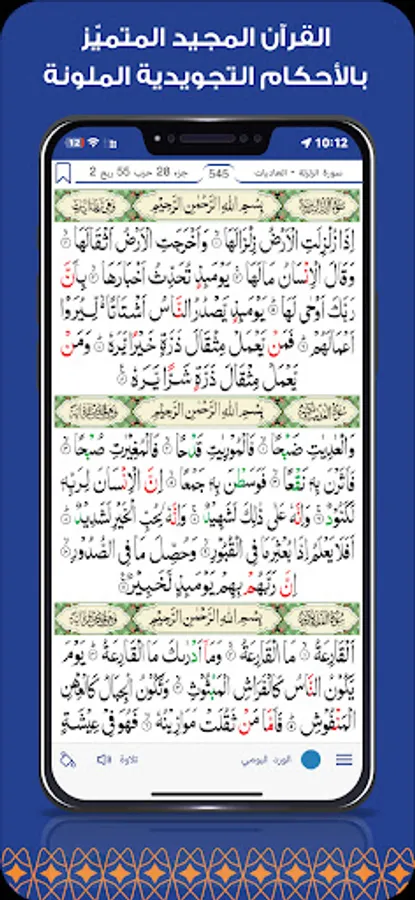 القرآن المجيد المتميّز
بالأحكام التجويدية الملونة
10:12
سورة الزلزلة - العاديات 545 جزء 28 حزب 55 ربع 2
بِسْمِ اللهِ الرَّحْمٰنِ الرَّحِيْمِ
اِذَا زُلْزِلَتِ الْاَرْضُ زِلْزَالَهَا وَاَخْرَجَتِ الْاَرْضُ اَثْقَالَهَا
وَقَالَ الْاِنْسَانُ مَالَهَا يَوْمَئِذٍ تُحَدِّثُ اَخْبَارَهَا بِاَنَّ
رَبَّكَ اَوْحٰى لَهَا يَوْمَئِذٍ يَّصْدُرُ النَّاسُ اَشْتَاتًا لِّيُرَوْا
اَعْمَالَهُمْ فَمَنْ يَّعْمَلْ مِثْقَالَ ذَرَّةٍ خَيْرًا يَّرَهٗ وَمَنْ
يَّعْمَلْ مِثْقَالَ ذَرَّةٍ شَرًّا يَّرَهٗ
بِسْمِ اللهِ الرَّحْمٰنِ الرَّحِيْمِ
وَالْعٰدِيٰتِ ضَبْحًا فَالْمُوْرِيٰتِ قَدْحًا فَالْمُغِيْرٰتِ صُبْحًا
فَاَثَرْنَ بِهٖ نَقْعًا فَوَسَطْنَ بِهٖ جَمْعًا اِنَّ الْاِنْسَانَ لِرَبِّهٖ
لَكَنُوْدٌ وَاِنَّهٗ عَلٰى ذٰلِكَ لَشَهِيْدٌ وَاِنَّهٗ لِحُبِّ الْخَيْرِ لَشَدِيْدٌ
اَفَلَا يَعْلَمُ اِذَا بُعْثِرَ مَا فِى الْقُبُوْرِ وَحُصِّلَ مَا فِى الصُّدُوْرِ
اِنَّ رَبَّهُمْ بِهِمْ يَوْمَئِذٍ لَّخَبِيْرٌ
بِسْمِ اللهِ الرَّحْمٰنِ الرَّحِيْمِ
اَلْقَارِعَةُ مَا الْقَارِعَةُ وَمَآ اَدْرٰىكَ مَا الْقَارِعَةُ يَوْمَ
يَكُوْنُ النَّاسُ كَالْفَرَاشِ الْمَبْثُوْثِ وَتَكُوْنُ الْجِبَالُ كَالْعِهْنِ
الْمَنْفُوْشِ فَاَمَّا مَنْ ثَقُلَتْ مَوَازِيْنُهٗ فَهُوَ فِىْ عِيْشَةٍ
الورد اليومي تلاوة